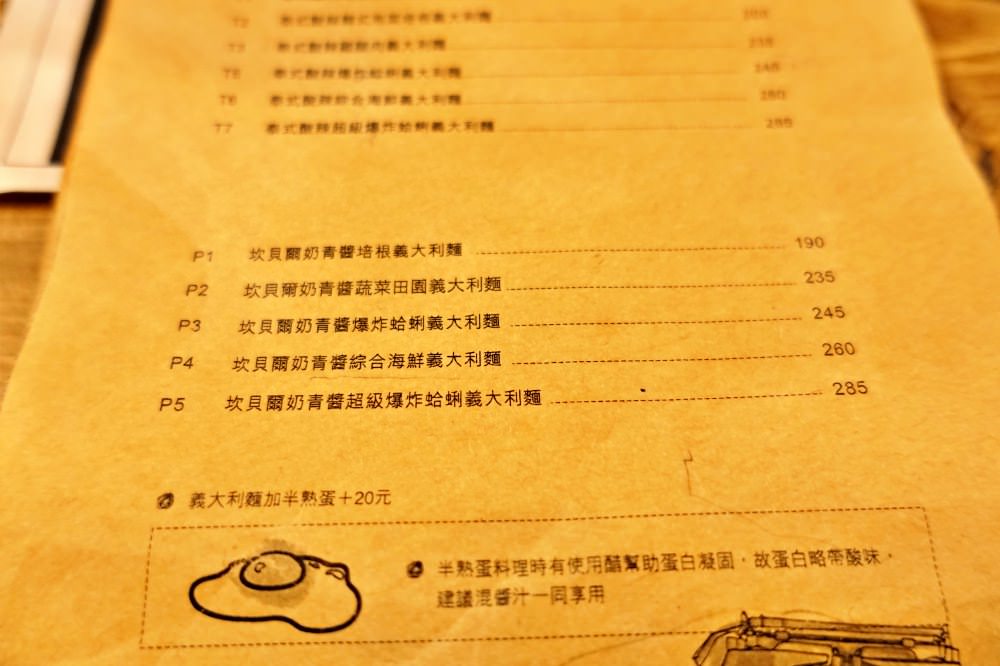 T2
T3 泰式酸辣
T5 泰式酸辣爆炸蛤蜊義大利麵 245
T6 泰式酸辣綜合海鮮義大利麵 260
T7 泰式酸辣超級爆炸蛤蜊義大利麵 285
P1 坎貝爾奶青醬培根義大利麵 190
P2 坎貝爾奶青醬蔬菜田園義大利麵 235
P3 坎貝爾奶青醬爆炸蛤蜊義大利麵 245
P4 坎貝爾奶青醬綜合海鮮義大利麵 260
P5 坎貝爾奶青醬超級爆炸蛤蜊義大利麵 285
義大利麵加半熟蛋+20元
半熟蛋料理時有使用醋幫助蛋白凝固，故蛋白略帶酸味，
建議混醬汁一同享用